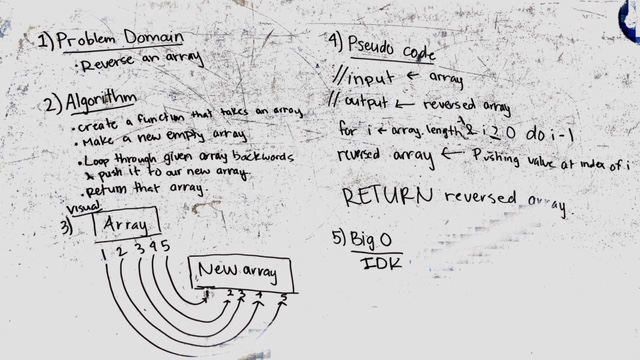 1) Problem Domain
· Reverse an array
2) Algorithm
· Create a function that takes an array
· Make a new empty array
· Loop through given array backwords
& push it to our new array
· Return that array.
visual
3) Array
1 2 3 4 5
New array
1 2 3 4 5
4) Pseudo code
// input ← array
// output ← reversed array
for i ← array.length-1 & i ≥ 0 do i-1
reversed array ← Pushing value at index of i
RETURN reversed array
5) Big O
IDK